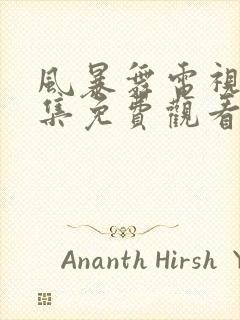 風暴舞電視
集免費觀看
Ananth Hirsh Y